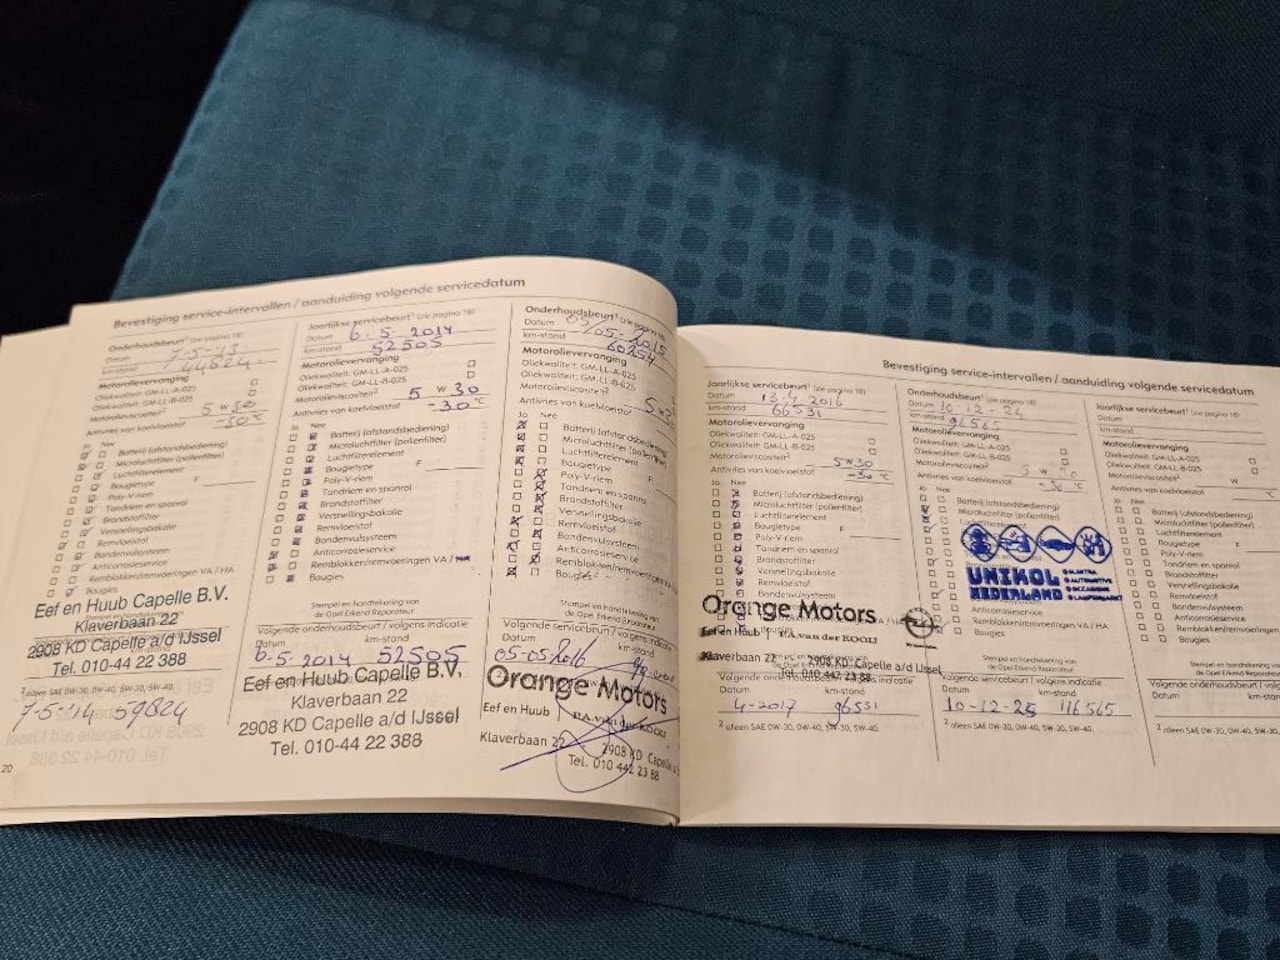 Bevestiging service-intervallen / aanduiding volgende servicedatum
Onderhoudsbeurt¹ (zie pagina 18)
Datum 7-5-'13
km-stand 44824
Motorolievervanging
Oliekwaliteit: GM-LL-A-025
Oliekwaliteit: GM-LL-B-025
Motorolieviscositeit² 5 W 30
Antivries van koelvloeistof -30 °C
Ja Nee
Batterij (afstandsbediening)
Microluchtfilter (pollenfilter)
Luchtfilterelement
Bougietype F
Poly-V-riem
Tandriem en spanrol
Brandstoffilter
Versnellingsbakolie
Remvloeistof
Bandenvulsysteem
Anticorrosieservice
Remblokken/remvoeringen VA / HA
Bougies
Eef en Huub Capelle B.V.
Klaverbaan 22
2908 KD Capelle a/d IJssel
Tel. 010-44 22 388
² alleen SAE 0W-30, 0W-40, 5W-30, 5W-40.
7-5-'14 59824
20
Jaarlijkse servicebeurt¹ (zie pagina 18)
Datum 6-5-2014
km-stand 52505
Motorolievervanging
Oliekwaliteit: GM-LL-A-025
Oliekwaliteit: GM-LL-B-025
Motorolieviscositeit² 5 W 30
Antivries van koelvloeistof -30 °C
Ja Nee
Batterij (afstandsbediening)
Microluchtfilter (pollenfilter)
Luchtfilterelement
Bougietype F
Poly-V-riem
Tandriem en spanrol
Brandstoffilter
Versnellingsbakolie
Remvloeistof
Bandenvulsysteem
Anticorrosieservice
Remblokken/remvoeringen VA / HA
Bougies
Stempel en handtekening van
de Opel Erkend Reparateur
Volgende onderhoudsbeurt / volgens indicatie
Datum km-stand
6-5-2014 52505
Eef en Huub Capelle B.V.
Klaverbaan 22
2908 KD Capelle a/d IJssel
Tel. 010-44 22 388
Onderhoudsbeurt¹ (zie pagina 18)
Datum 05/05-2015
km-stand 60254
Motorolievervanging
Oliekwaliteit: GM-LL-A-025
Oliekwaliteit: GM-LL-B-025
Motorolieviscositeit² 5W3
Antivries van koelvloeistof
Ja Nee
Batterij (afstandsbediening)
Microluchtfilter (pollenfilter)
Luchtfilterelement
Bougietype
Poly-V-riem
Tandriem en spanrol
Brandstoffilter
Versnellingsbakolie
Remvloeistof
Bandenvulsysteem
Anticorrosieservice
Remblokken/remvoeringen VA
Bougies
Stempel en handtekening van
de Opel Erkend Reparateur
Volgende servicebeurt / volgens indicatie
Datum km-stand
05-05-2016
Orange Motors
Eef en Huub P.A. van der KOOIJ
Klaverbaan 22 2908 KD Capelle a/
Tel. 010 442 23 88
Bevestiging service-intervallen / aanduiding volgende servicedatum
Jaarlijkse servicebeurt¹ (zie pagina 18)
Datum 13-4-2016
km-stand 66531
Motorolievervanging
Oliekwaliteit: GM-LL-A-025
Oliekwaliteit: GM-LL-B-025
Motorolieviscositeit² 5W30
Antivries van koelvloeistof -30 °C
Ja Nee
Batterij (afstandsbediening)
Microluchtfilter (pollenfilter)
Luchtfilterelement
Bougietype F
Poly-V-riem
Tandriem en spanrol
Brandstoffilter
Versnellingsbakolie
Remvloeistof
Bandenvulsysteem
Orange Motors
Eef en Huub P.A. van der KOOIJ
Klaverbaan 22 2908 KD Capelle a/d IJssel
Tel. 010 442 23 88
Volgende servicebeurt / volgens indicatie
Datum km-stand
4-2017 96531
² alleen SAE 0W-30, 0W-40, 5W-30, 5W-40.
Onderhoudsbeurt¹ (zie pagina 18)
Datum 10-12-24
km-stand 96565
Motorolievervanging
Oliekwaliteit: GM-LL-A-025
Oliekwaliteit: GM-LL-B-025
Motorolieviscositeit²
Antivries van koelvloeistof °C
Ja Nee
Batterij (afstandsbediening)
Microluchtfilter (pollenfilter)
UNIKOL
NEDERLAND
ELEKTRA
AUTOMOTIVE
OCCASIONS
Anticorrosieservice
Remblokken/remvoeringen VA / HA
Bougies
Stempel en handtekening van
de Opel Erkend Reparateur
Volgende onderhoudsbeurt / volgens indicatie
Datum km-stand
10-12-25 116565
² alleen SAE 0W-30, 0W-40, 5W-30, 5W-40.
Jaarlijkse servicebeurt¹ (zie pagina 18)
Datum
km-stand
Motorolievervanging
Oliekwaliteit: GM-LL-A-025
Oliekwaliteit: GM-LL-B-025
Motorolieviscositeit² W
Antivries van koelvloeistof °C
Ja Nee
Batterij (afstandsbediening)
Microluchtfilter (pollenfilter)
Luchtfilterelement
Bougietype F
Poly-V-riem
Tandriem en spanrol
Brandstoffilter
Versnellingsbakolie
Remvloeistof
Bandenvulsysteem
Anticorrosieservice
Remblokken/remvoeringen
Bougies
Stempel en handtekening van
de Opel Erkend Reparateur
Volgende onderhoudsbeurt / vol
Datum km-stand
² alleen SAE 0W-30, 0W-40, 5W-30,